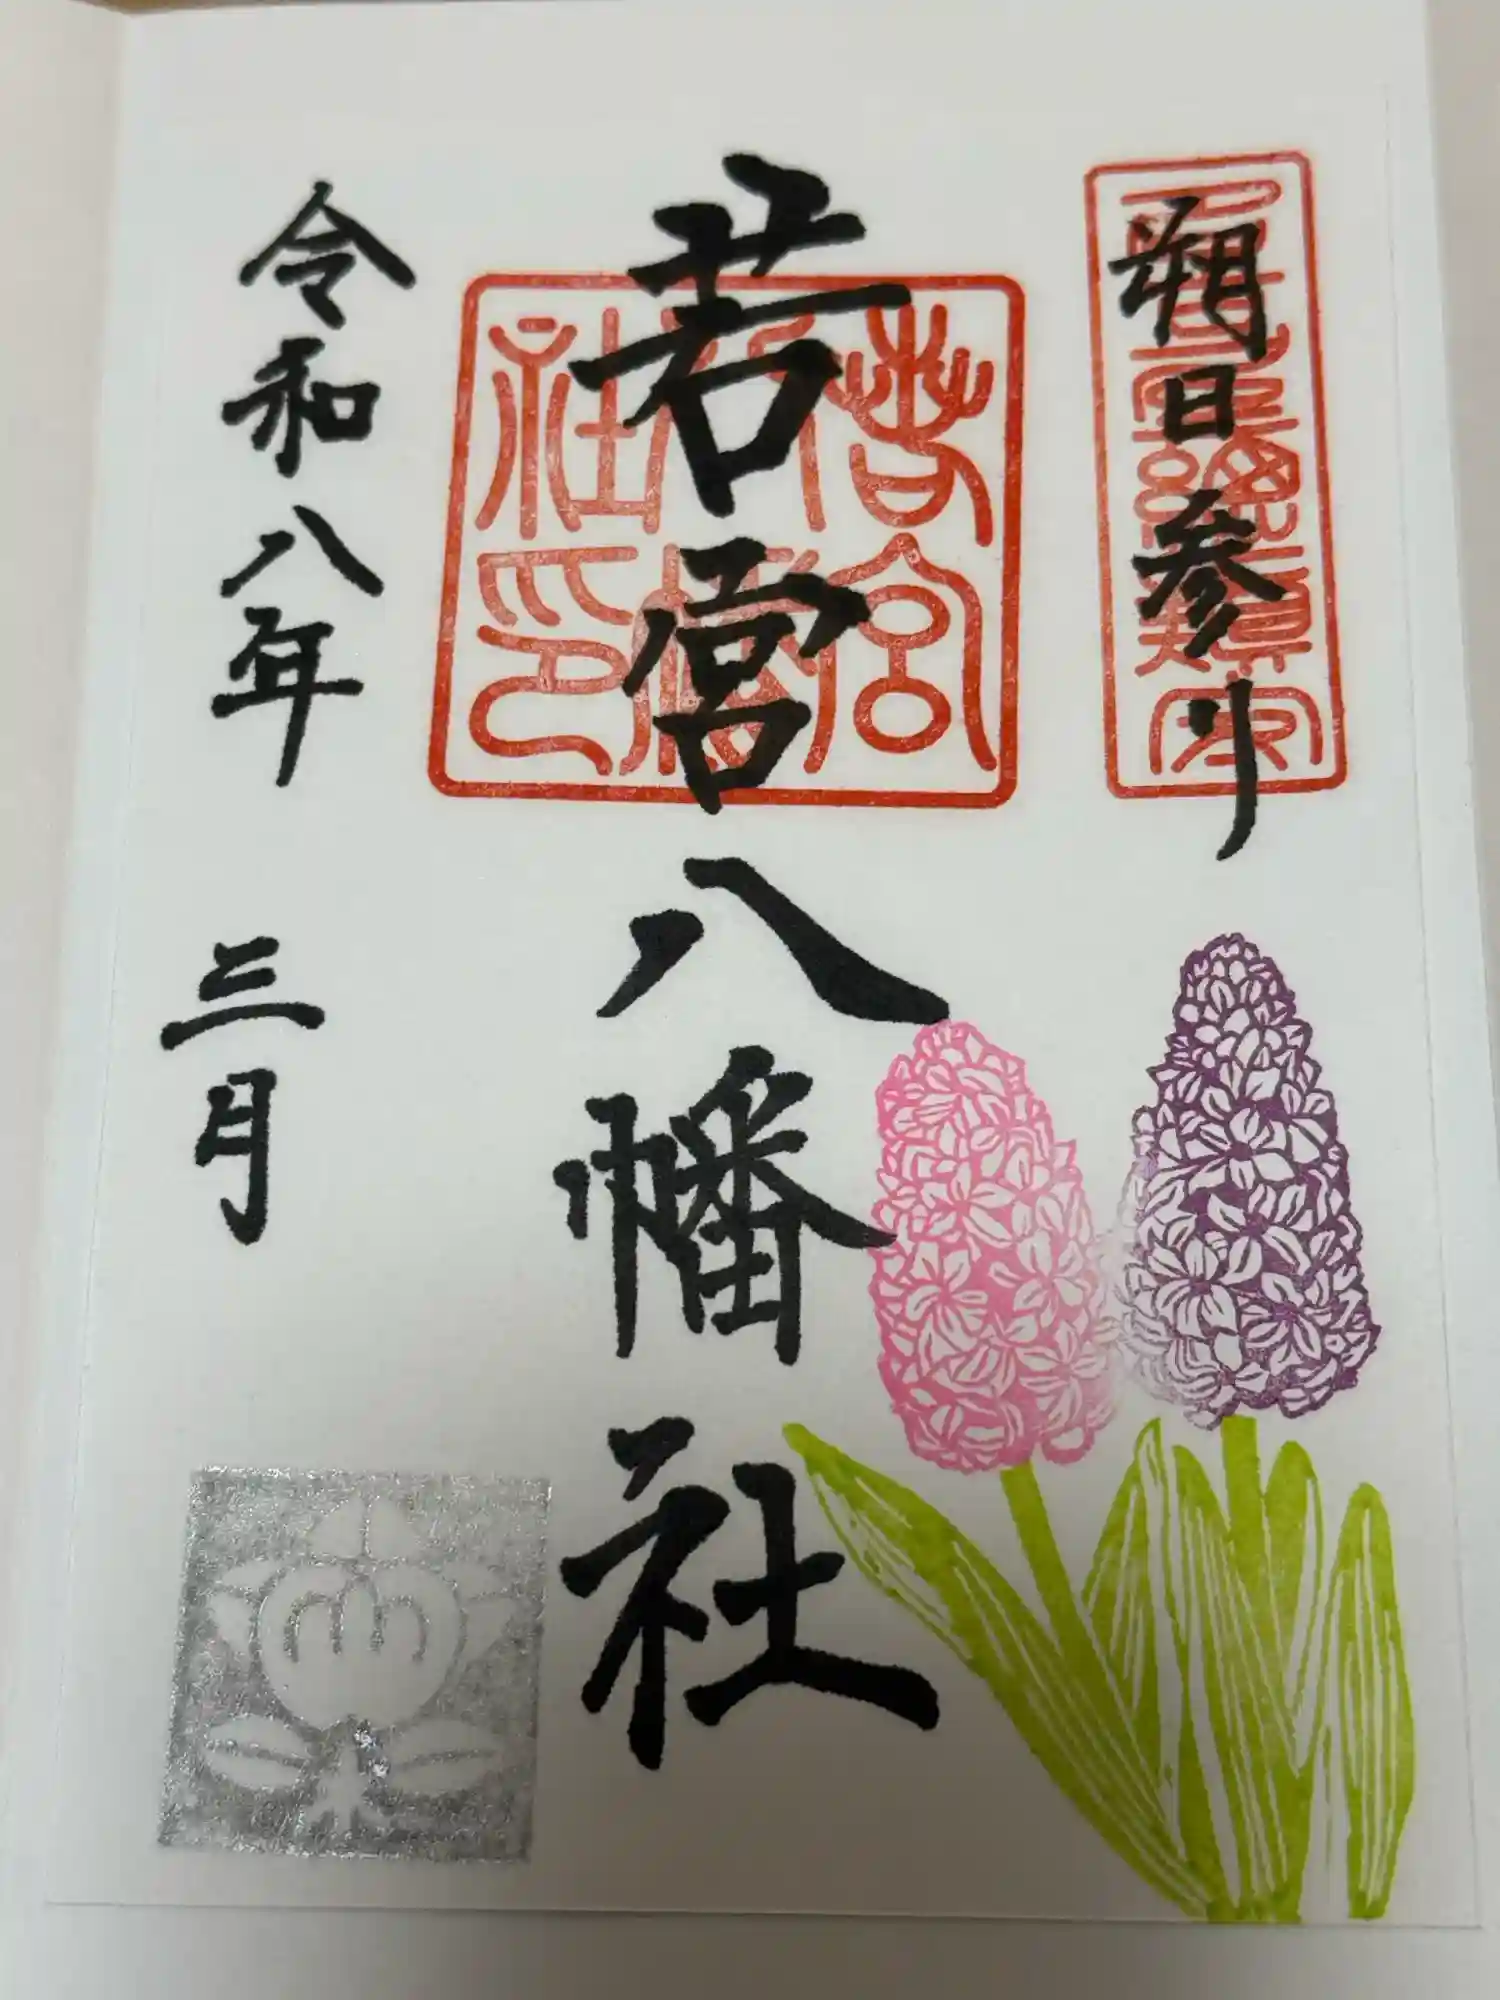 朔日参り
若宮八幡社
令和八年 三月
若宮八幡社印